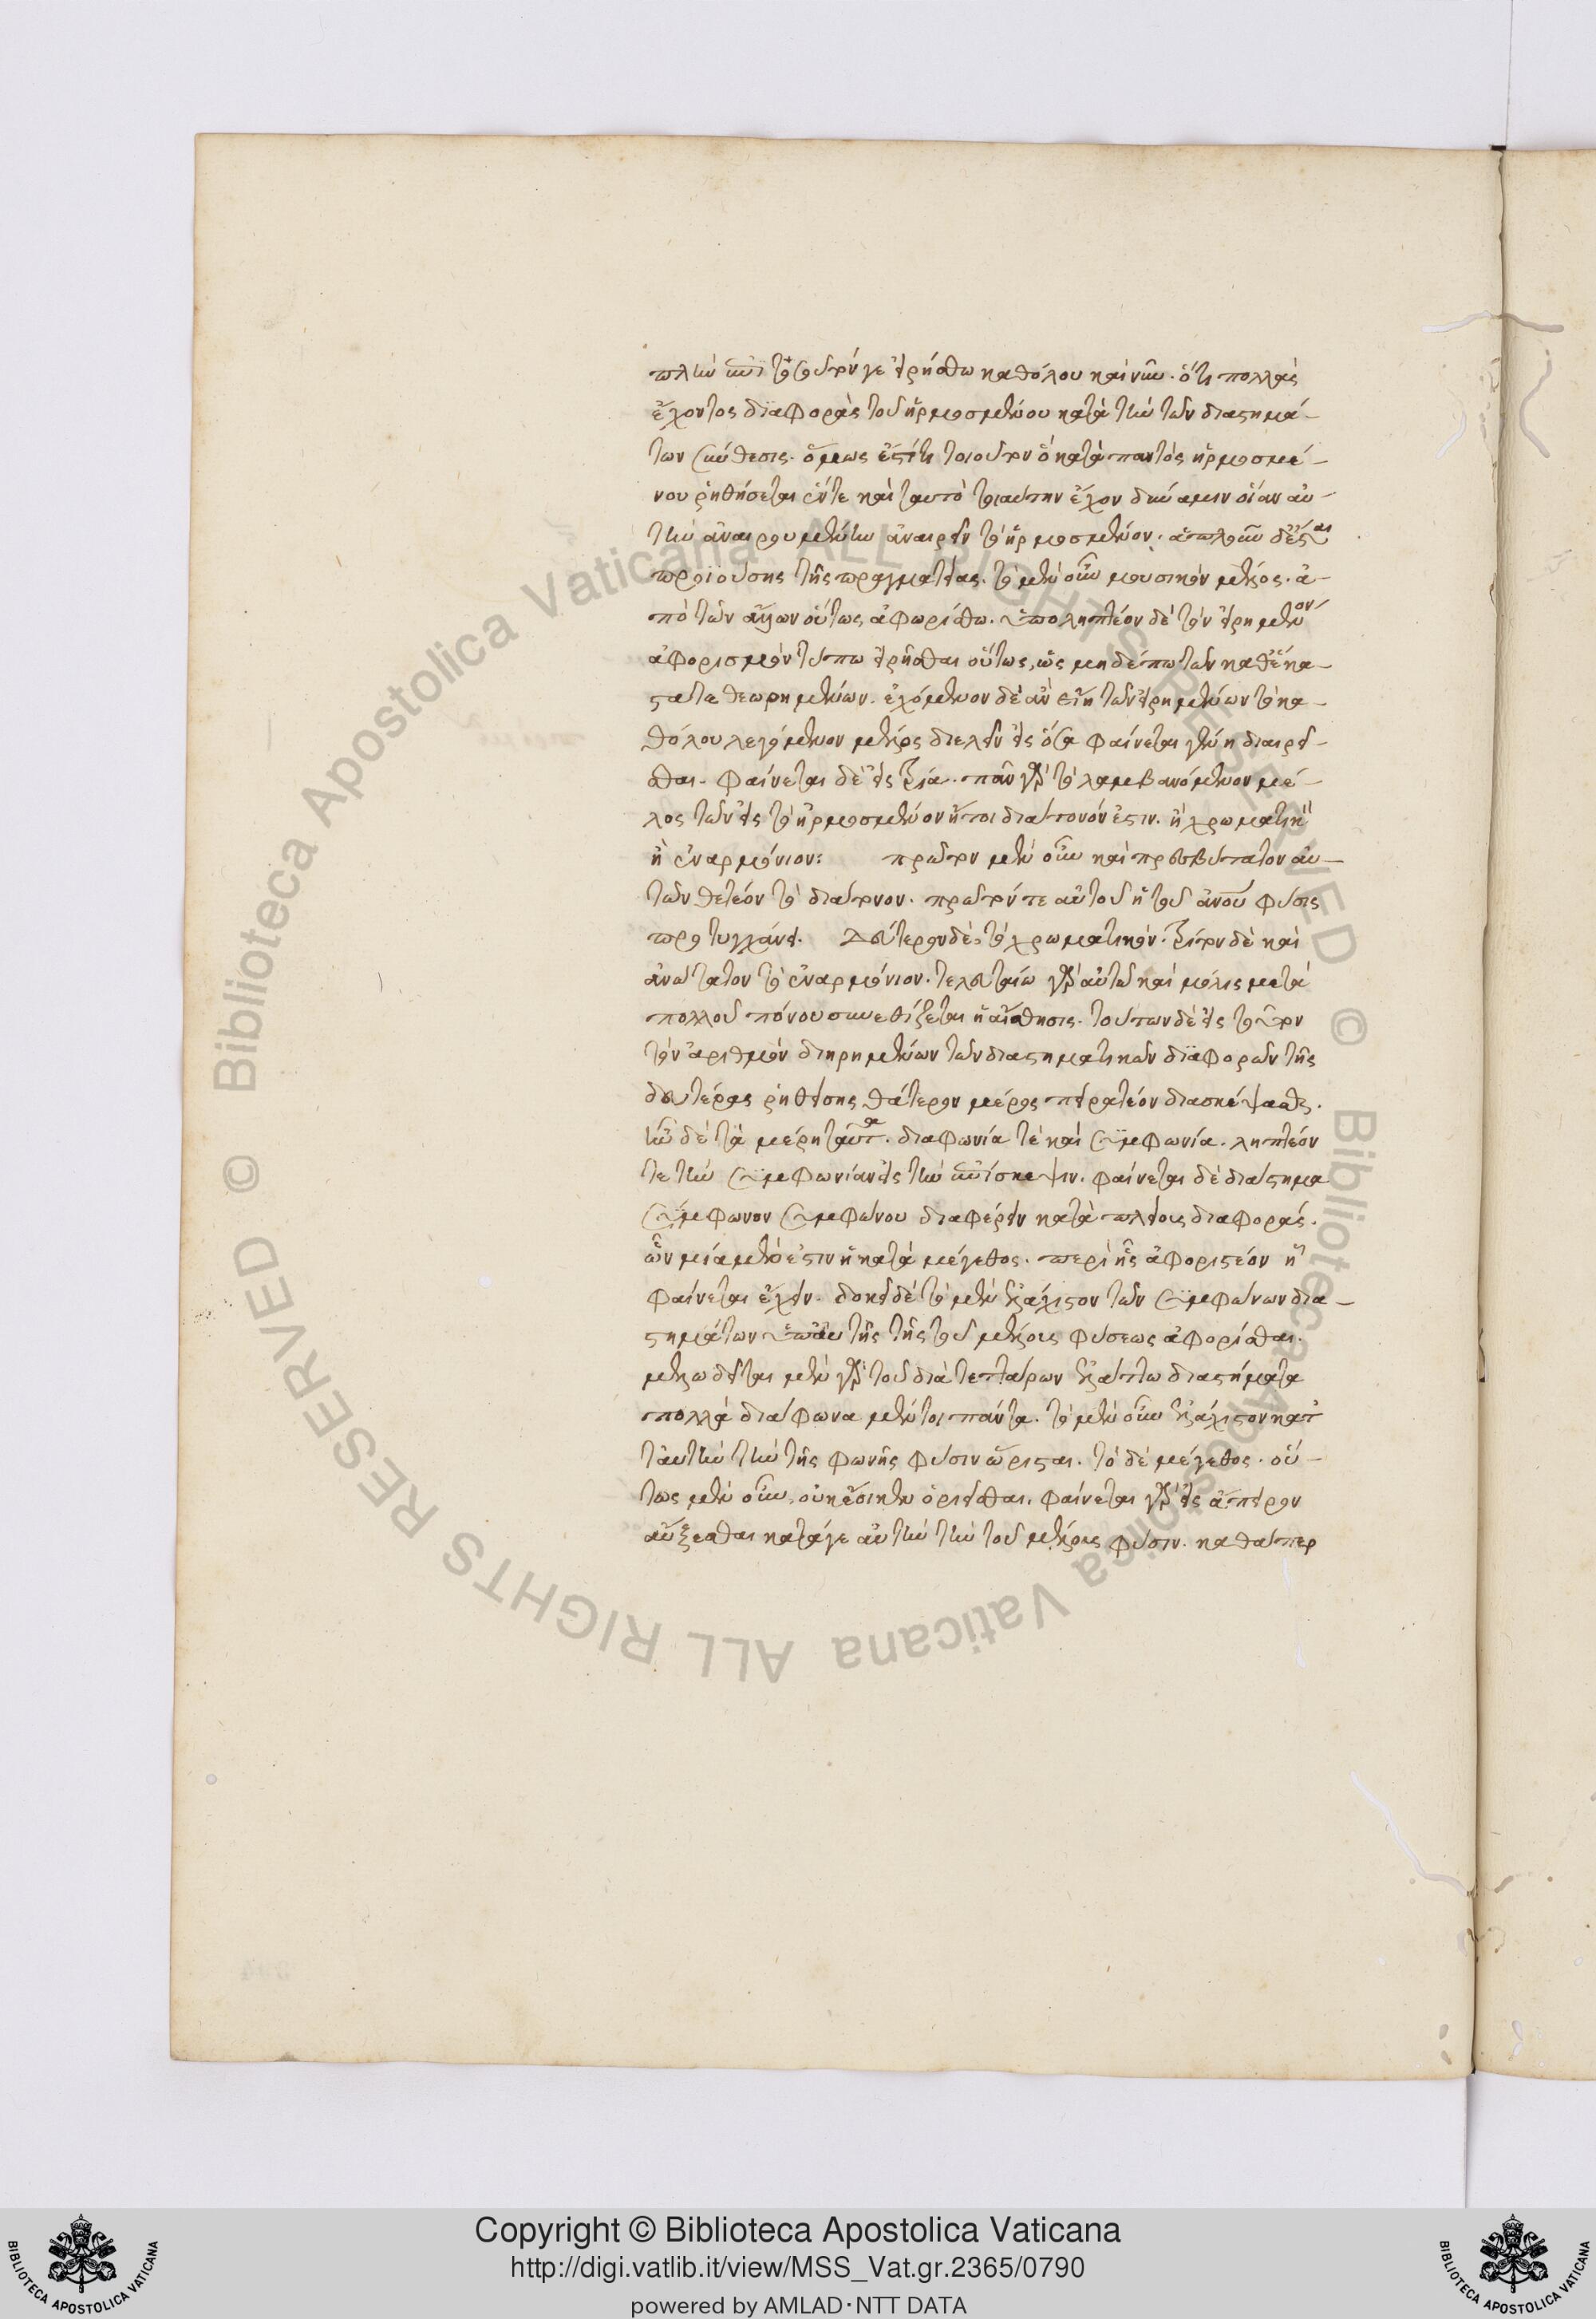 πλὴν ἐπὶ τοσοῦτόν γε εἰρήσθω καθόλου καὶ νῦν. ὅτι πολλὰς
ἔχοντος διαφορὰς τοῦ ἡρμοσμένου κατὰ τὴν τῶν διαστημά-
των σύνθεσις. ὅμως ἐστί τι τοιοῦτον ὃ κατὰ παντὸς ἡρμοσμέ-
νου ῥηθήσεται ἕν τε καὶ ταυτὸ τοιαύτην ἔχον δύναμιν οἵαν αὐ-
τὴν ἀναιρουμένην ἀναιρεῖν τὸ ἡρμοσμένον. ἁπλοῦν δ' ἔσται
προϊούσης τῆς πραγματείας. τὸ μὲν οὖν μουσικὸν μέλος. ἀ-
πὸ τῶν ἄλλων οὕτως ἀφωρίσθω. ὑποληπτέον δὲ τὸν εἰρημένον
ἀφορισμὸν τύπω εἰρῆσθαι οὕτως, ὡς μηδέπω τῶν καθ' ἕκα-
στα τεθεωρημένων. ἐχόμενον δ' ἂν εἴη τῶν εἰρημένων τὸ κα-
θόλου λεγόμενον μέλος διελεῖν εἰς ὅσα φαίνεται γένη διαιρεῖ-
σθαι. φαίνεται δ' εἰς τρία. πᾶν γὰρ τὸ λαμβανόμενον μέ-
λος τῶν εἰς τὸ ἡρμοσμένον ἤτοι διάτονόν ἐστιν. ἢ χρωματικὸν
ἢ ἐναρμόνιον: πρῶτον μὲν οὖν καὶ πρεσβύτατον αὐ-
τῶν θετέον τὸ διάτονον. πρῶτόν τε αὐτοῦ ἡ τοῦ ἀνου φύσις
προτυγχάνει. Δεύτερον δὲ, τὸ χρωματικόν. τρίτον δὲ καὶ
ἀνώτατον τὸ ἐναρμόνιον. τελευταίω γὰρ αὐτῶ καὶ μόλις μετὰ
πολλοῦ πόνου συνεθίζεται ἡ αἴσθησις. τούτων δὲ εἰς τοῦτον
τὸν ἀριθμὸν διηρημένων τῶν διαστηματικῶν διαφορῶν τῆς
δευτέρας ῥηθείσης θάτερον μέρος πειρατέον διασκέψασθαι.
ἦν δὲ τὰ μέρη ταῦτα. διαφωνία τὲ καὶ συμφωνία. ληπτέον
τε τὴν συμφωνίαν εἰς τὴν ἐπίσκεψιν. φαίνεται δὲ διάστημα
σύμφωνον συμφώνου διαφέρειν κατὰ πλείους διαφοράς.
ὧν μία μέν ἐστιν ἡ κατὰ μέγεθος. περὶ ἧς ἀφοριστέον ἣ
φαίνεται ἔχειν. δοκεῖ δὲ τὸ μὲν ἐλάχιστον τῶν συμφώνων δια-
στημάτων ὑπ' αὐτῆς τῆς τοῦ μέλους φύσεως ἀφορίσθαι.
μελωδεῖται μὲν γὰρ τοῦ διὰ τεττάρων ἐλάττω διαστήματα
πολλὰ διάφωνα μέντοι πάντα. τὸ μὲν οὖν ἐλάχιστον κατ'
ταυτὴν τὴν τῆς φωνῆς φύσιν ὥρισται. τὸ δὲ μέγεθος. οὕ-
τως μὲν οὖν, οὐκ ἔοικεν ὁρίζεσθαι. φαίνεται γὰρ εἰς ἄπειρον
αὔξεσθαι κατά γε αὐτὴν τὴν τοῦ μέλους φύσιν. καθάπερ
Copyright © Biblioteca Apostolica Vaticana
http://digi.vatlib.it/view/MSS_Vat.gr.2365/0790
powered by AMLAD·NTT DATA